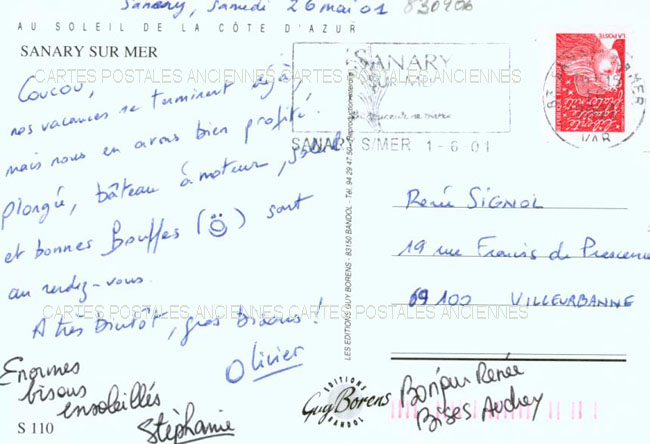 Sanary, Samedi 26 mai 01
830906
AU SOLEIL DE LA CÔTE D'AZUR
SANARY SUR MER
CARTES POSTALES ANCIENNES CARTES POSTALES ANCIENNES
Coucou,
nos vacances se terminent déjà,
mais nous en avons bien profité.
Plongée, bâteau à moteur, soleil
et bonnes Bouffes (☺) sont
au rendez-vous.
A très bientôt, gros bisous !
Olivier
Enormes
bisous
ensoleillés
Stéphanie
S 110
SANARY
SUR MER
SANARY S/MER 1-6-01
LA POSTE
VAR
LES EDITIONS GUY BORENS - 83150 BANDOL - Tél. 94 29 47 90 - Reproduction interdite
Renée SIGNOL
19 rue Francis de Pressensé
69100 VILLEURBANNE
CARTES POSTALES ANCIENNES CARTES POSTALES ANCIENNES
EDITIONS
Guy Borens
BANDOL
Bonjour Renée
Bises Audrey